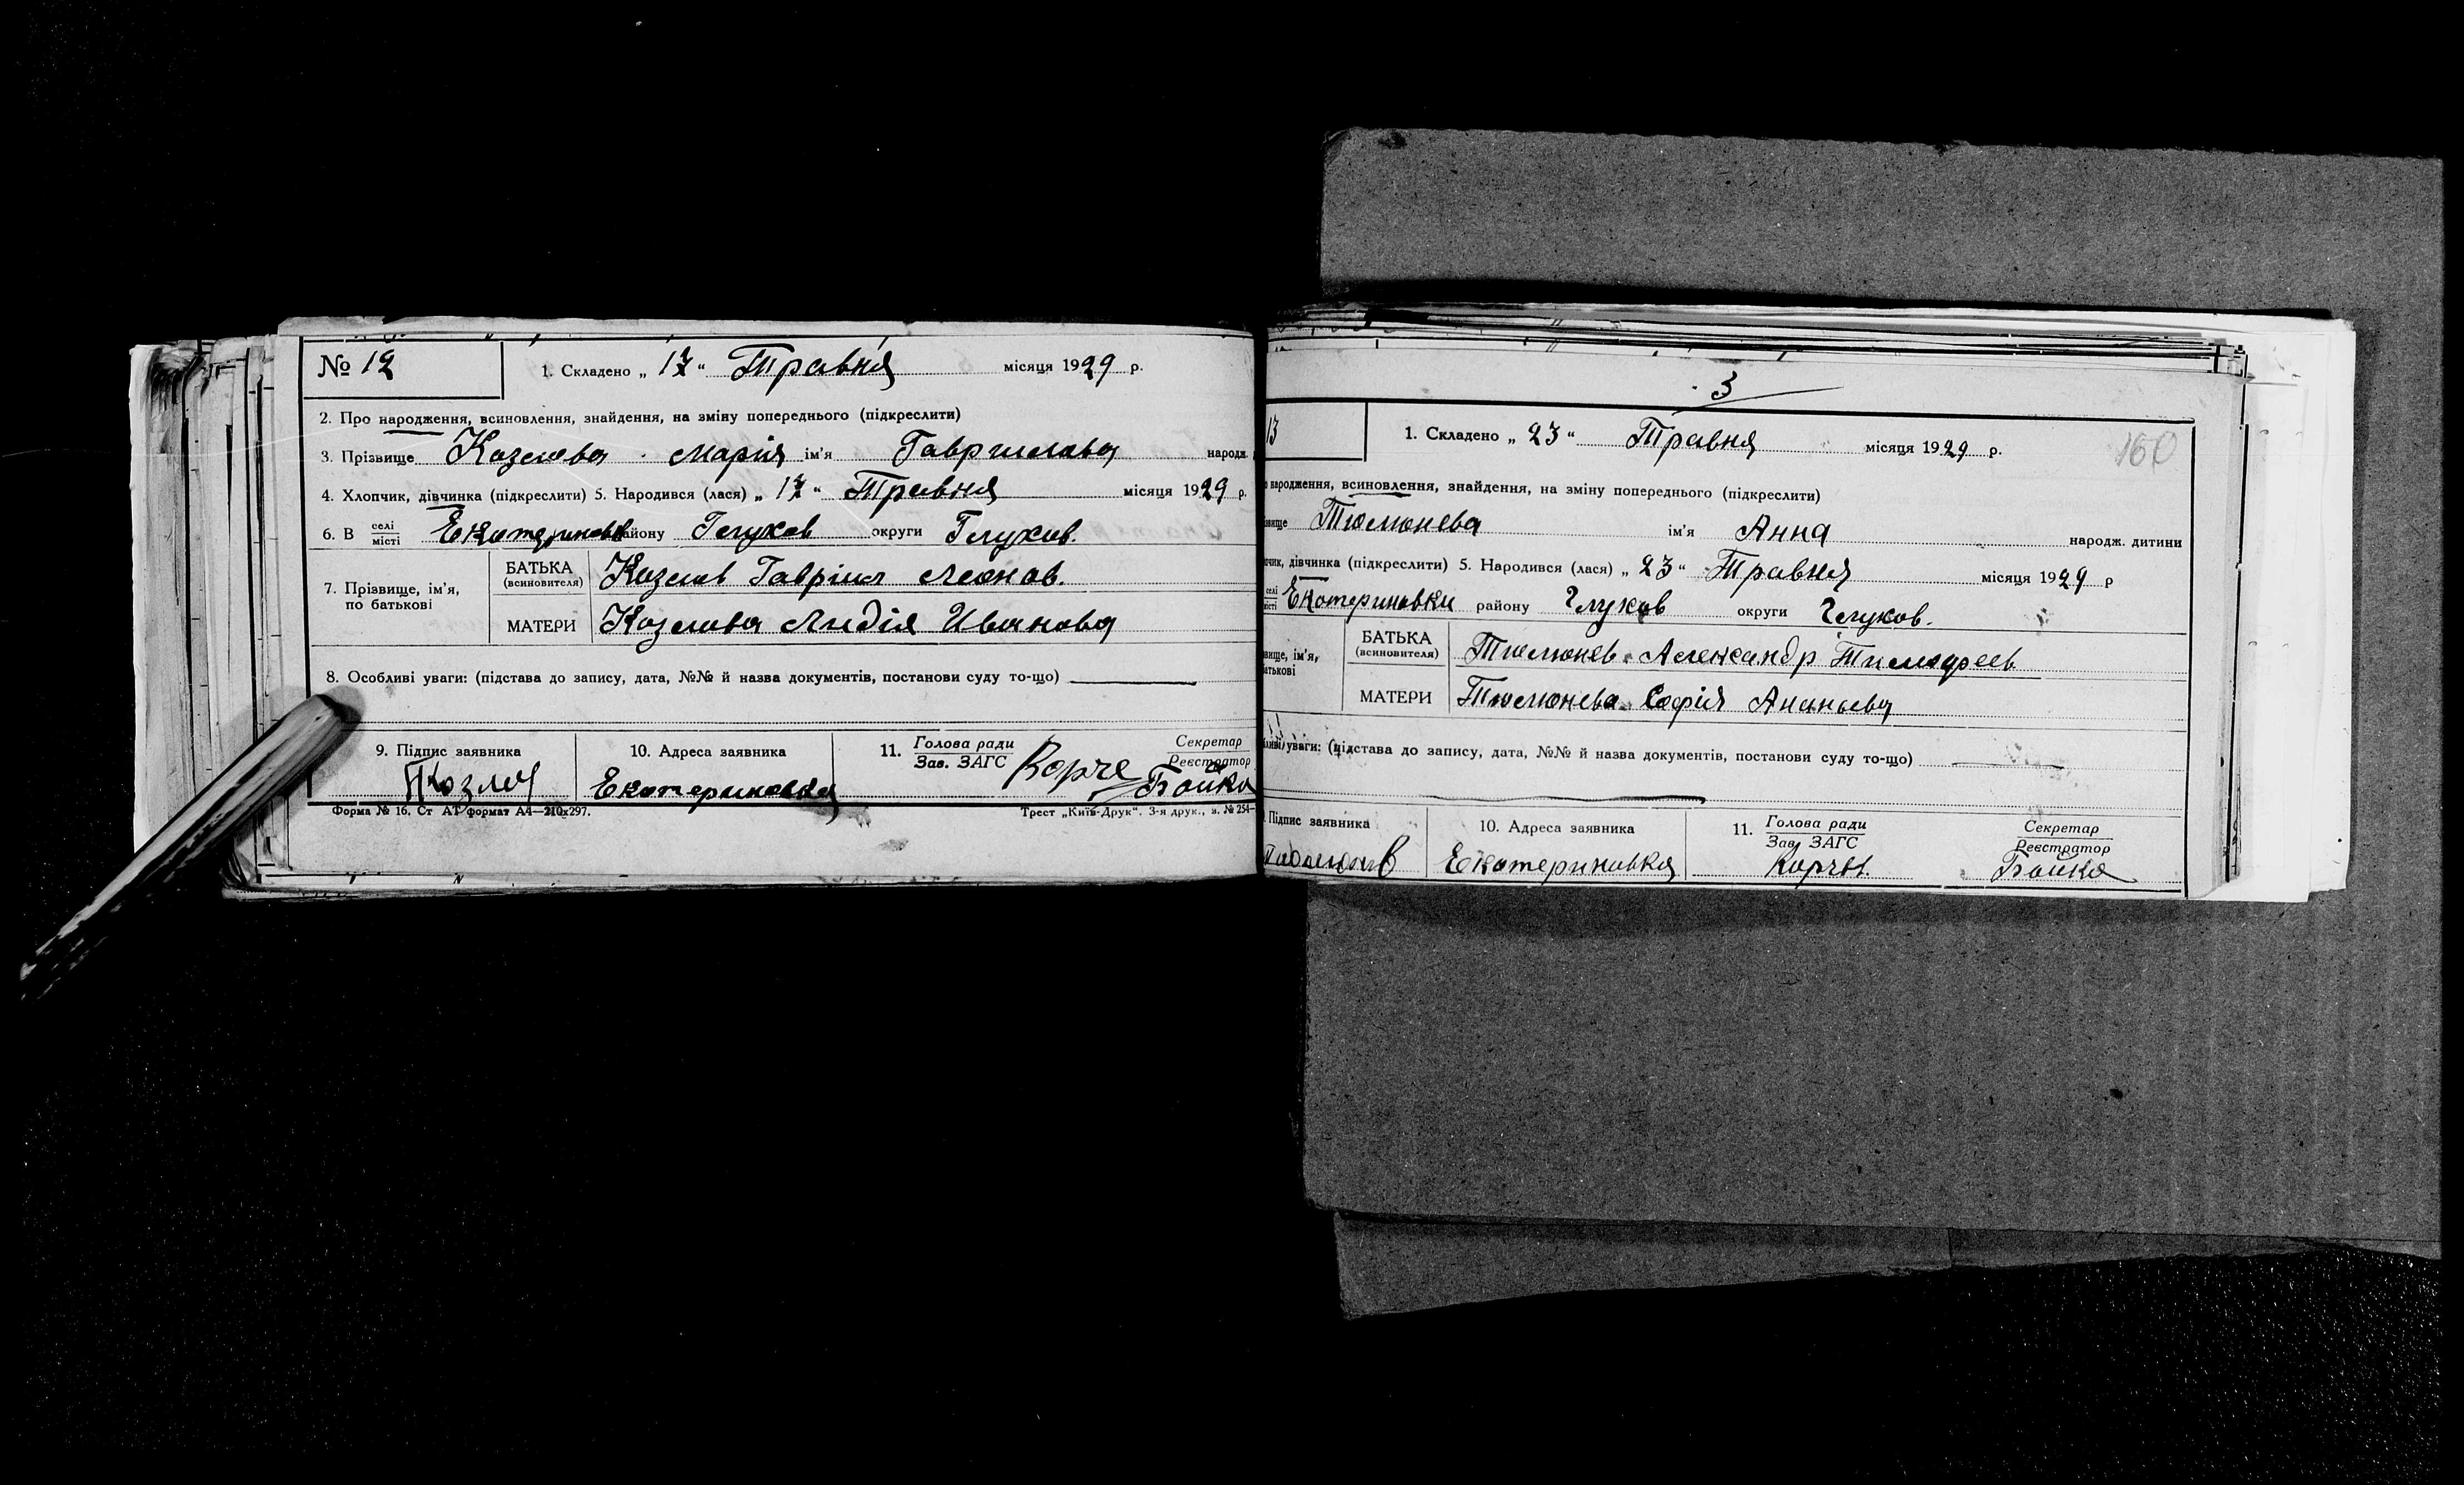 № 12
1. Складено „ 17 “ Травня місяця 1929 р.
2. Про народження, всиновлення, знайдення, на зміну попереднього (підкреслити)
3. Прізвище Козлова Марія ім'я Гаврилова народж.
4. Хлопчик, дівчинка (підкреслити) 5. Народився (лася) „ 17 “ Травня місяця 1929 р.
6. В селі місті Екатериновк району Глухов округи Глухов.
7. Прізвище, ім'я, по батькові
БАТЬКА (всиновителя) Козлов Гавріил Леонов.
МАТЕРИ Козлова Лидія Иванова
8. Особливі уваги: (підстава до запису, дата, №№ й назва документів, постанови суду то-що)
9. Підпис заявника
10. Адреса заявника Екатериновка
11. Голова ради Зав. ЗАГС Корче Секретар Реєстратор Бойко
Форма № 16. Ст АТ формат А4—210х297.
Трест „Київ-Друк“. 3-я друк., з. № 254-
3
160
13
1. Складено „ 23 “ Травня місяця 1929 р.
народження, всиновлення, знайдення, на зміну попереднього (підкреслити)
звище Тюлюнева ім'я Анна народж. дитини
пчик, дівчинка (підкреслити) 5. Народився (лася) „ 23 “ Травня місяця 1929 р
селі місті Екатериновки району Глухов округи Глухов.
звище, ім'я, батькові
БАТЬКА (всиновителя) Тюлюнев Александр Тимофеев
МАТЕРИ Тюлюнева Софія Ананьева
уваги: (підстава до запису, дата, №№ й назва документів, постанови суду то-що)
Підпис заявника
10. Адреса заявника Екатериновка
11. Голова ради Зав. ЗАГС
Секретар Реєстратор Бойко